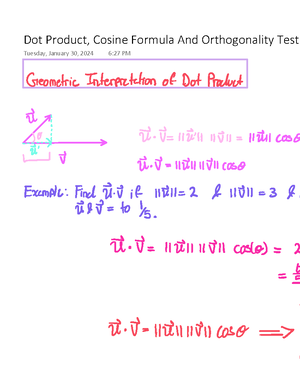 Dot Product, Cosine Formula And Orthogonality Test
Tuesday, January 30, 2024 6:27 PM
Geometric Interpretation of Dot Product
u⃗
θ
u⃗'
v⃗
u⃗ · v⃗ = ||u⃗'|| ||v⃗|| = ||u⃗|| cos θ
u⃗ · v⃗ = ||u⃗|| ||v⃗|| cos θ
Example: Find u⃗ · v⃗ if ||u⃗|| = 2 & ||v⃗|| = 3 &
u⃗ & v⃗ = to 1/5.
u⃗ · v⃗ = ||u⃗|| ||v⃗|| cos(θ) = 2
=
u⃗ · v⃗ = ||u⃗|| ||v⃗|| cos θ ⟹